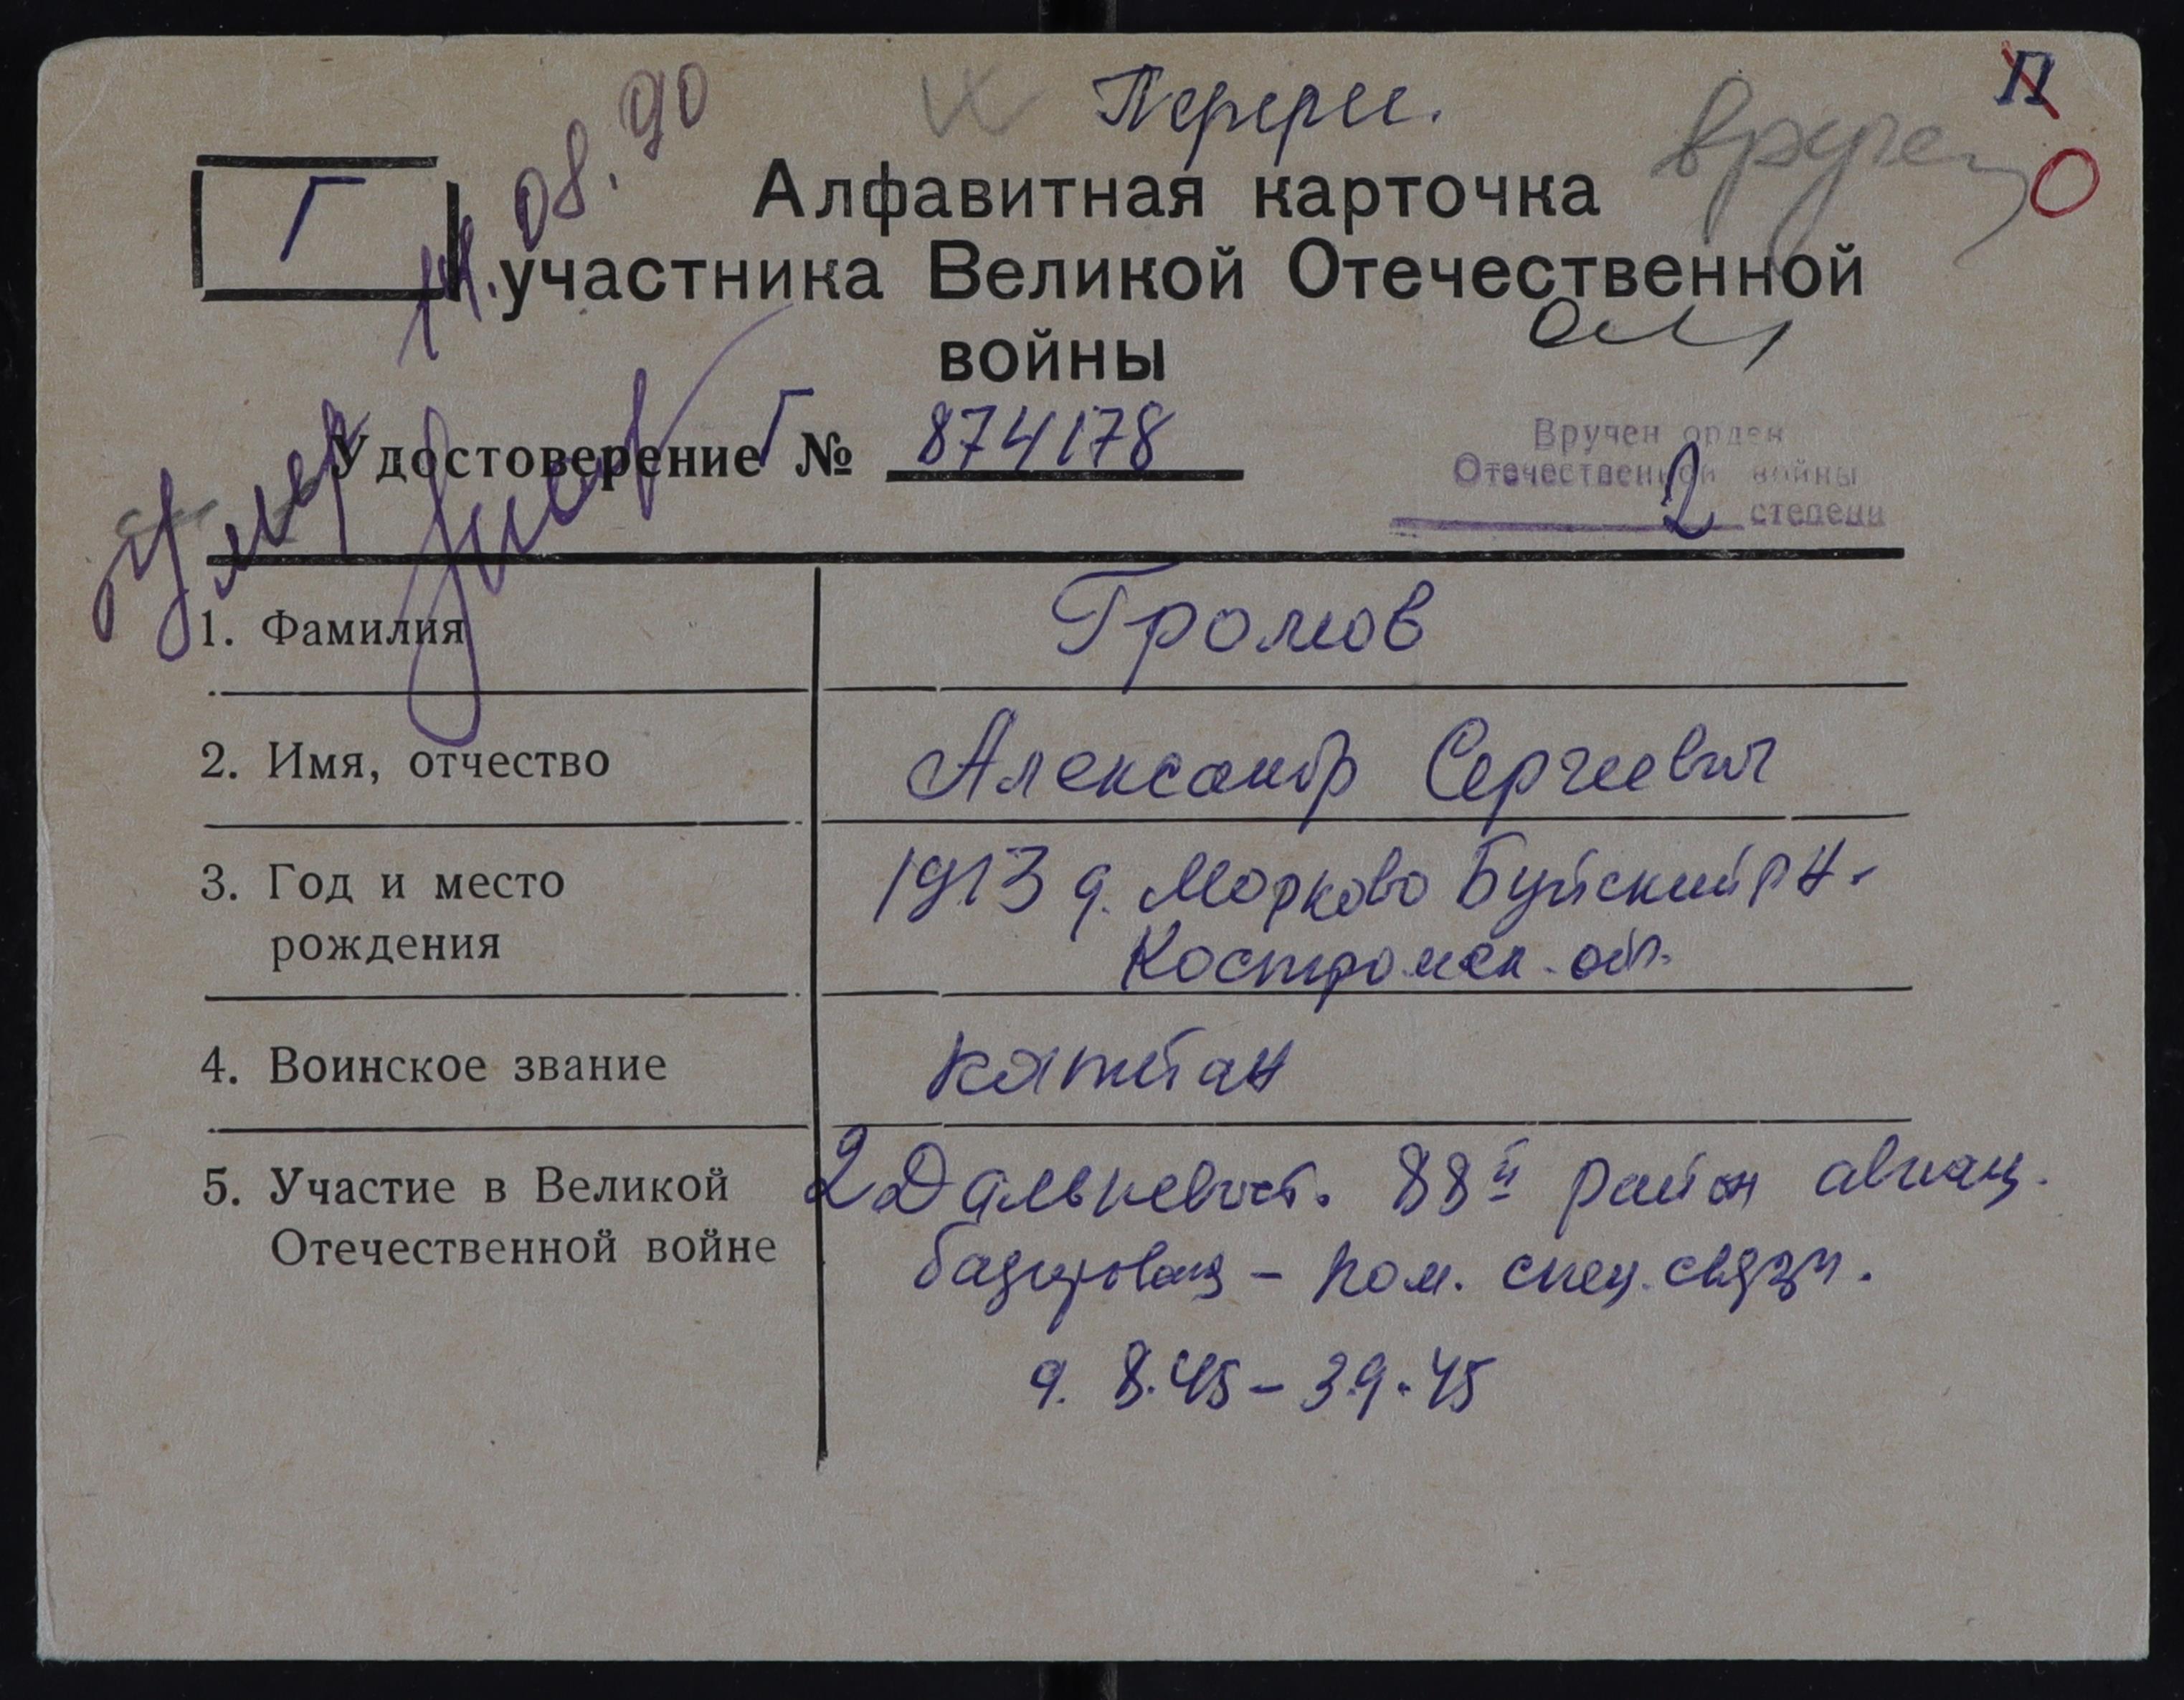 Перерег.
П
О
14.08.90
вручен
Г
Алфавитная карточка
участника Великой Отечественной
войны
Удостоверение Г № 874178
Вручен орден
Отечественной войны
2 степени
Умер
1. Фамилия Громов
2. Имя, отчество Александр Сергеевич
3. Год и место рождения 1913 д. Морково Буйский р-н.
Костромск. обл.
4. Воинское звание капитан
5. Участие в Великой Отечественной войне 2 Дальневост. 88й район авиац.
базирован – пом. спец. связи.
9.8.45 – 3.9.45